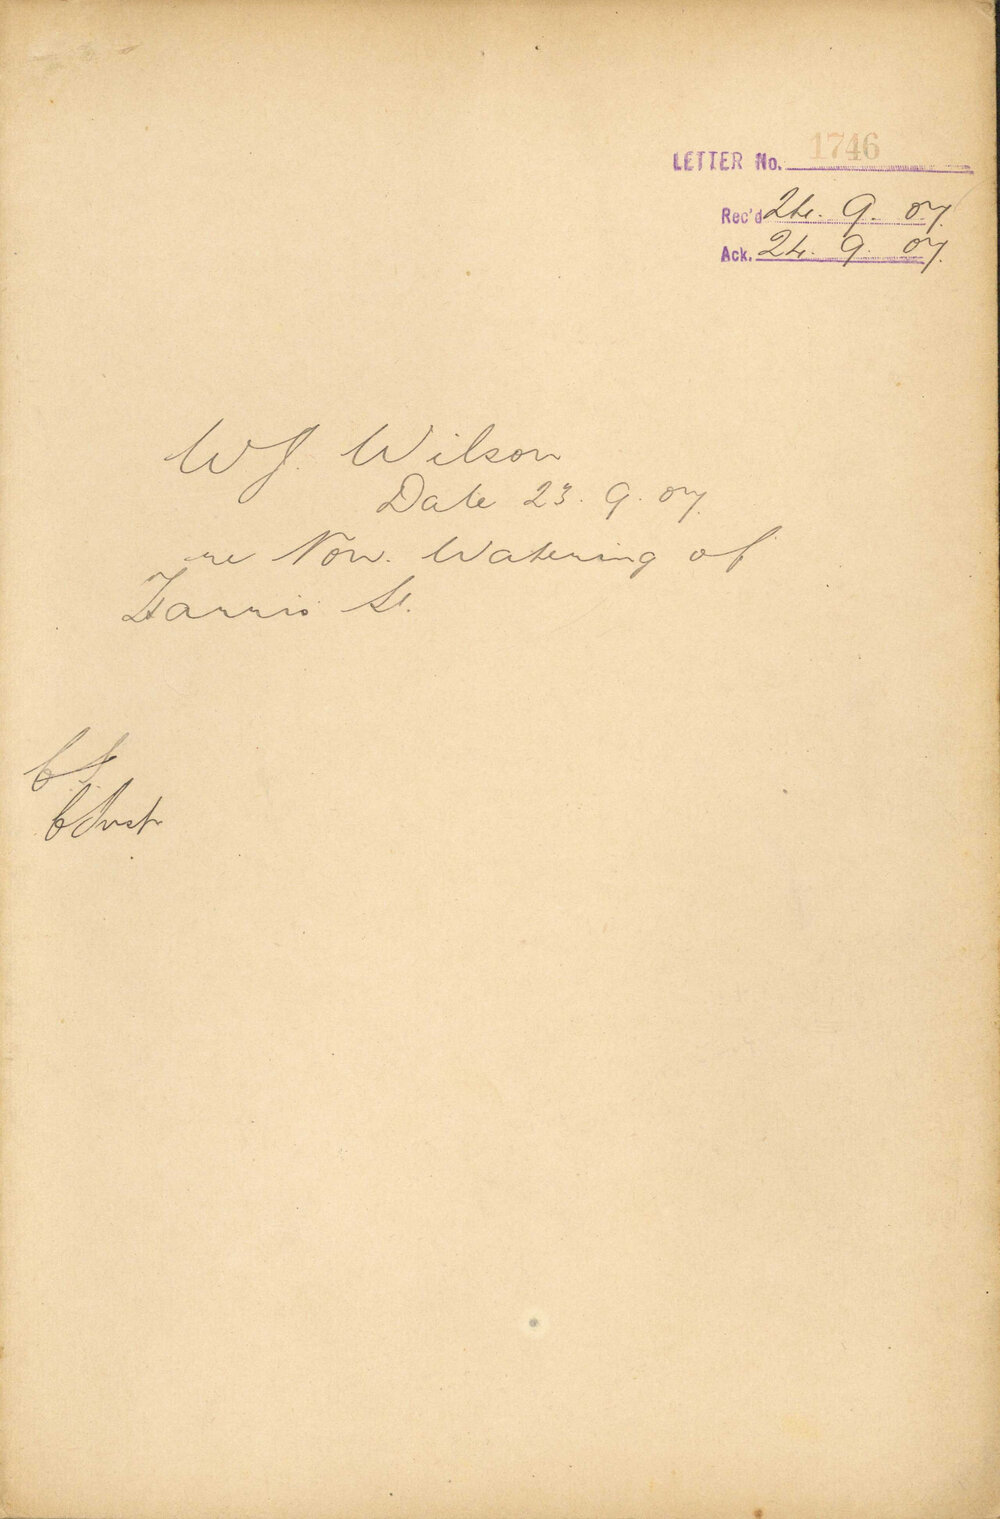 LETTER No. 1746
Rec'd 24. 9. 07.
Ack. 24. 9. 07.
W J. Wilson
Date 23. 9. 07
re Non. Watering of
Harris St.